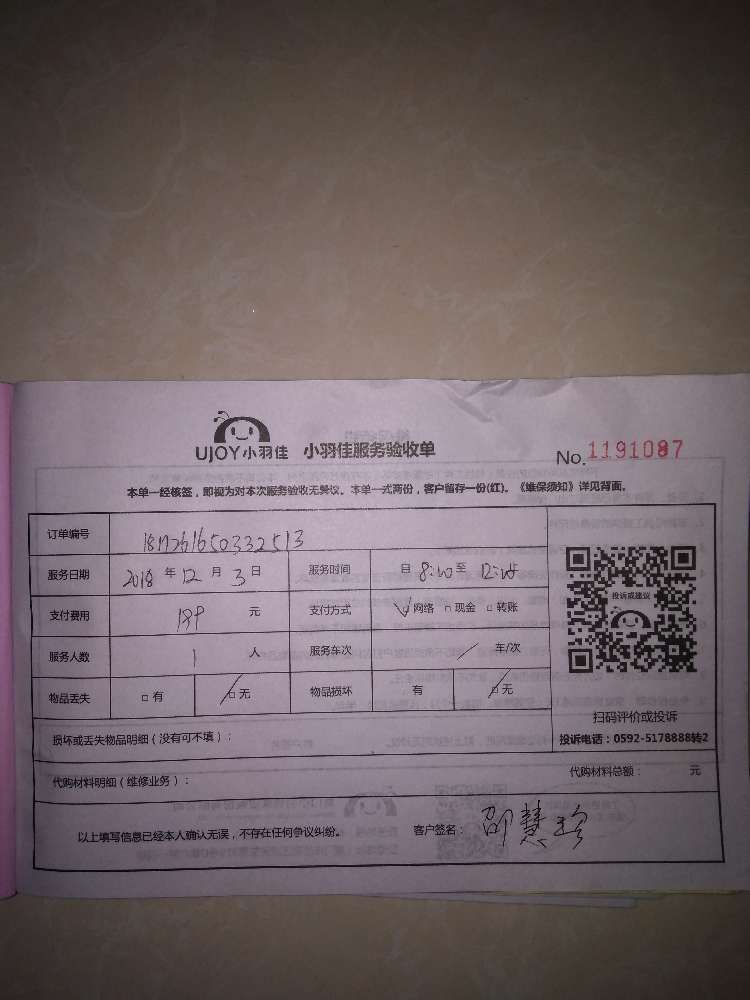 UJOY小羽佳 小羽佳服务验收单 No.1191087
本单一经核签，即视为对本次服务验收无异议。本单一式两份，客户留存一份(红)。《维保须知》详见背面。
订单编号
服务日期 2018 年 12 月 3 日 服务时间 自 8:00 至
支付费用 199 元 支付方式 ☑网络 □现金 □转账
服务人数 1 人 服务车次 / 车/次
物品丢失 □有 ☑无 物品损坏 有 ☑无
投诉或建议
扫码评价或投诉
损坏或丢失物品明细（没有可不填）： 投诉电话：0592-5178888转2
代购材料明细（维修业务）： 代购材料总额： 元
以上填写信息已经本人确认无误，不存在任何争议纠纷。 客户签名： 邵慧珍